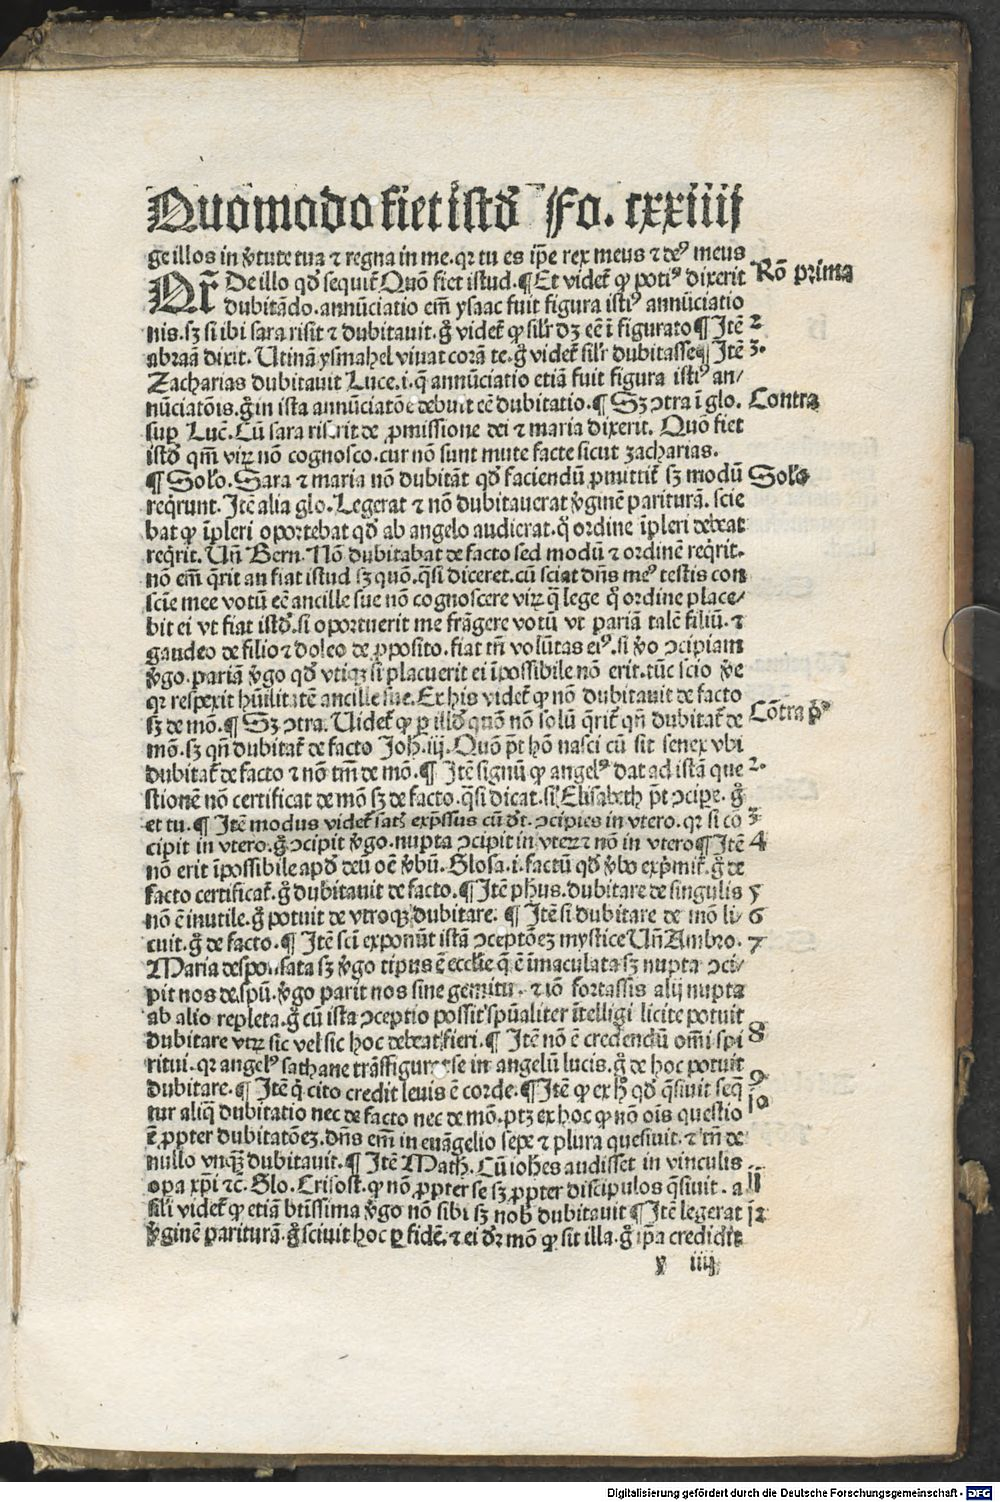 Quōmodo fiet istđ Fo. cxxiiij
ge illos in v̄tute tua ⁊ regna in me. qꝛ tu es ip̄e rex meus ⁊ deꝰ meus
Qꝛ̄ De illo qđ sequit̄ Quō fiet istud. ¶ Et videt̄ ꝙ potiꝰ dixerit
Rō prima
dubitādo. annūciatio em̄ ysaac fuit figura istiꝰ annūciatio
nis. sꝫ si ibi sara risit ⁊ dubitauit. ḡ videt̄ ꝙ silr̄ dꝫ eē ī figurato ¶ Itē 2
abraā dixit. Utinā ysmahel viuat corā te. ḡ videt̄ silr̄ dubitasse ¶ Itē 3.
Zacharias dubitauit Luce. i. q̄ annūciatio etiā fuit figura istiꝰ an/
nūciatōis. ḡ in ista annūciatōe debuit eē dubitatio. ¶ Sꝫ ↄtra ī glo. Contra
suꝑ Luc̄. Cū sara riserit de ꝓmissione dei ⁊ maria dixerit. Quō fiet
istđ qm̄ viꝝ nō cognosco. cur nō sunt mute facte sicut zacharias.
¶ Solo. Sara ⁊ maria nō dubitāt qđ faciendū ꝓmittit̄ sꝫ modū Solo
reqͥrunt. Itē alia glo. Legerat ⁊ nō dubitauerat v̄ginē pariturā. scie
bat ꝙ īpleri oportebat qđ ab angelo audierat. q̄ ordine īpleri debeat
reqͥrit. Uñ Bern. Nō dubitabat de facto sed modū ⁊ ordinē reqͥrit.
nō em̄ q̄rit an fiat istud sꝫ quō. q̄si diceret. cū sciat dn̄s meꝰ testis con
sciē mee votū eē ancille sue nō cognoscere viꝝ q̄ lege q̄ ordine place/
bit ei vt fiat istđ. si oportuerit me frāgere votū vt pariā talē filiū. ⁊
gaudeo de filio ⁊ doleo de ꝓposito. fiat tn̄ volūtas eiꝰ. si v̄o ↄcipiam
v̄go. pariā v̄go qđ vtiqꝫ si placuerit ei īpossibile nō erit. tūc scio v̄e
qꝛ respexit hūilitatē ancille sue. Ex his videt̄ ꝙ nō dubitauit de facto
sꝫ de mō. ¶ Sꝫ ↄtra. Uidet̄ ꝙ ꝑ illđ quō nō solū q̄rit̄ qn̄ dubitat̄ de Cōtra pͥ
mō. sꝫ qn̄ dubitat̄ de facto Joh. iij. Quō pōt hō nasci cū sit senex vbi
dubitat̄ de facto ⁊ nō tm̄ de mō. ¶ Itē signū ꝙ angelꝰ dat ad istā que 2.
stionē nō certificat de mō sꝫ de facto. q̄si dicat. si Elisabeth pōt ↄcipe. ḡ
et tu. ¶ Itē modus videt̄ satꝭ exp̄ssus cū dr̄. ↄcipies in vtero. qꝛ si cō 3
cipit in vtero. ḡ ↄcipit v̄go. nupta ↄcipit in vteꝝ ⁊ nō in vtero ¶ Itē 4
nō erit īpossibile apđ deū oē v̄bū. Glosa. i. factū qđ v̄bo exp̄mit̄. ḡ de
facto certificat̄. ḡ dubitauit de facto. ¶ Itē ph̄us. dubitare de singulis 5
nō ē inutile. ḡ potuit de vtroqꝫ dubitare. ¶ Itē si dubitare de mō li/ 6
cuit. ḡ de facto. ¶ Itē sc̄i exponūt istā ↄceptōeꝫ mystice Uñ Ambro. 7
Maria desponsata sꝫ v̄go tipus ē eccl̄ie q̄ ē īmaculata sꝫ nupta ↄci/
pit nos de. spū. v̄go parit nos sine gemitu. ⁊ iō fortassis alij nupta
ab alio repleta. ḡ cū ista ↄceptio possit sp̄ualiter ītelligi licite potuit
dubitare vtꝝ sic vel sic hoc debeat fieri. ¶ Itē nō ē credendū om̄i spi 8
ritui. qꝛ angelꝰ sathane trāsfigurat se in angelū lucis. ḡ de hoc potuit
dubitare. ¶ Itē q̄ cito credit leuis ē corde. ¶ Itē ꝙ ex hͦ qđ q̄siuit seqͥ 9
tur aliq̄ dubitatio nec de facto nec de mō. ptꝫ ex hoc ꝙ nō ois questio 10
ē ꝓpter dubitatōeꝫ. dn̄s em̄ in euāgelio sepe ⁊ plura quesiuit. ⁊ tn̄ de
nullo vnqͣꝫ dubitauit. ¶ Itē Math. Cū ioh̄es audisset in vinculis
oꝑa xp̄i ⁊c̄. Glo. Crisost. ꝙ nō ꝓpter se sꝫ ꝓpter discipulos q̄siuit. a 11
sili videt̄ ꝙ etiā btissima v̄go nō sibi sꝫ nob̄ dubitauit ¶ Itē legerat 12
v̄ginē pariturā. ḡ sciuit hoc ꝑ fidē. ⁊ ei dr̄ mō ꝙ sit illa. ḡ ip̄a credidit
y iiij
Digitalisierung gefördert durch die Deutsche Forschungsgemeinschaft - DFG